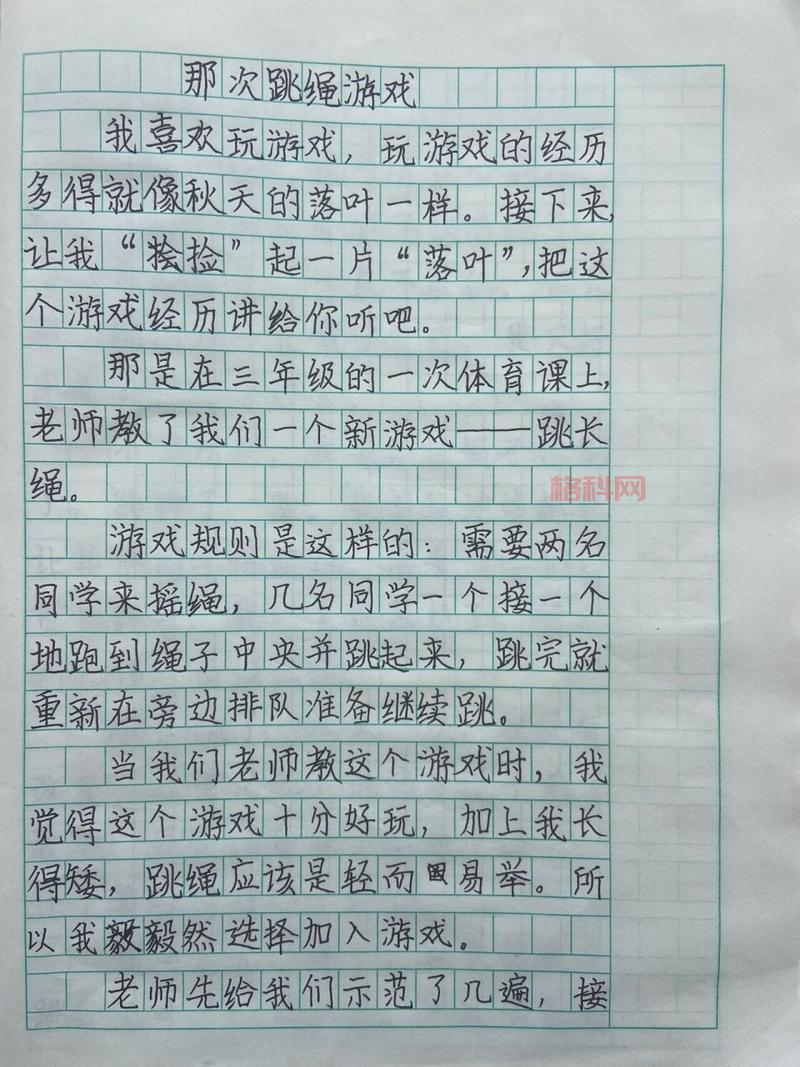 那次跳绳游戏
我喜欢玩游戏，玩游戏的经历
多得就像秋天的落叶一样。接下来，
让我“捡”起一片“落叶”，把这
个游戏经历讲给你听吧。
那是在三年级的一次体育课上，
老师教了我们一个新游戏——跳长
绳。
格科网
游戏规则是这样的：需要两名
同学来摇绳，几名同学一个接一个
地跑到绳子中央并跳起来，跳完就
重新在旁边排队准备继续跳。
当我们老师教这个游戏时，我
觉得这个游戏十分好玩，加上我长
得矮，跳绳应该是轻而易举。所
以我毅然选择加入游戏。
老师先给我们示范了几遍，接